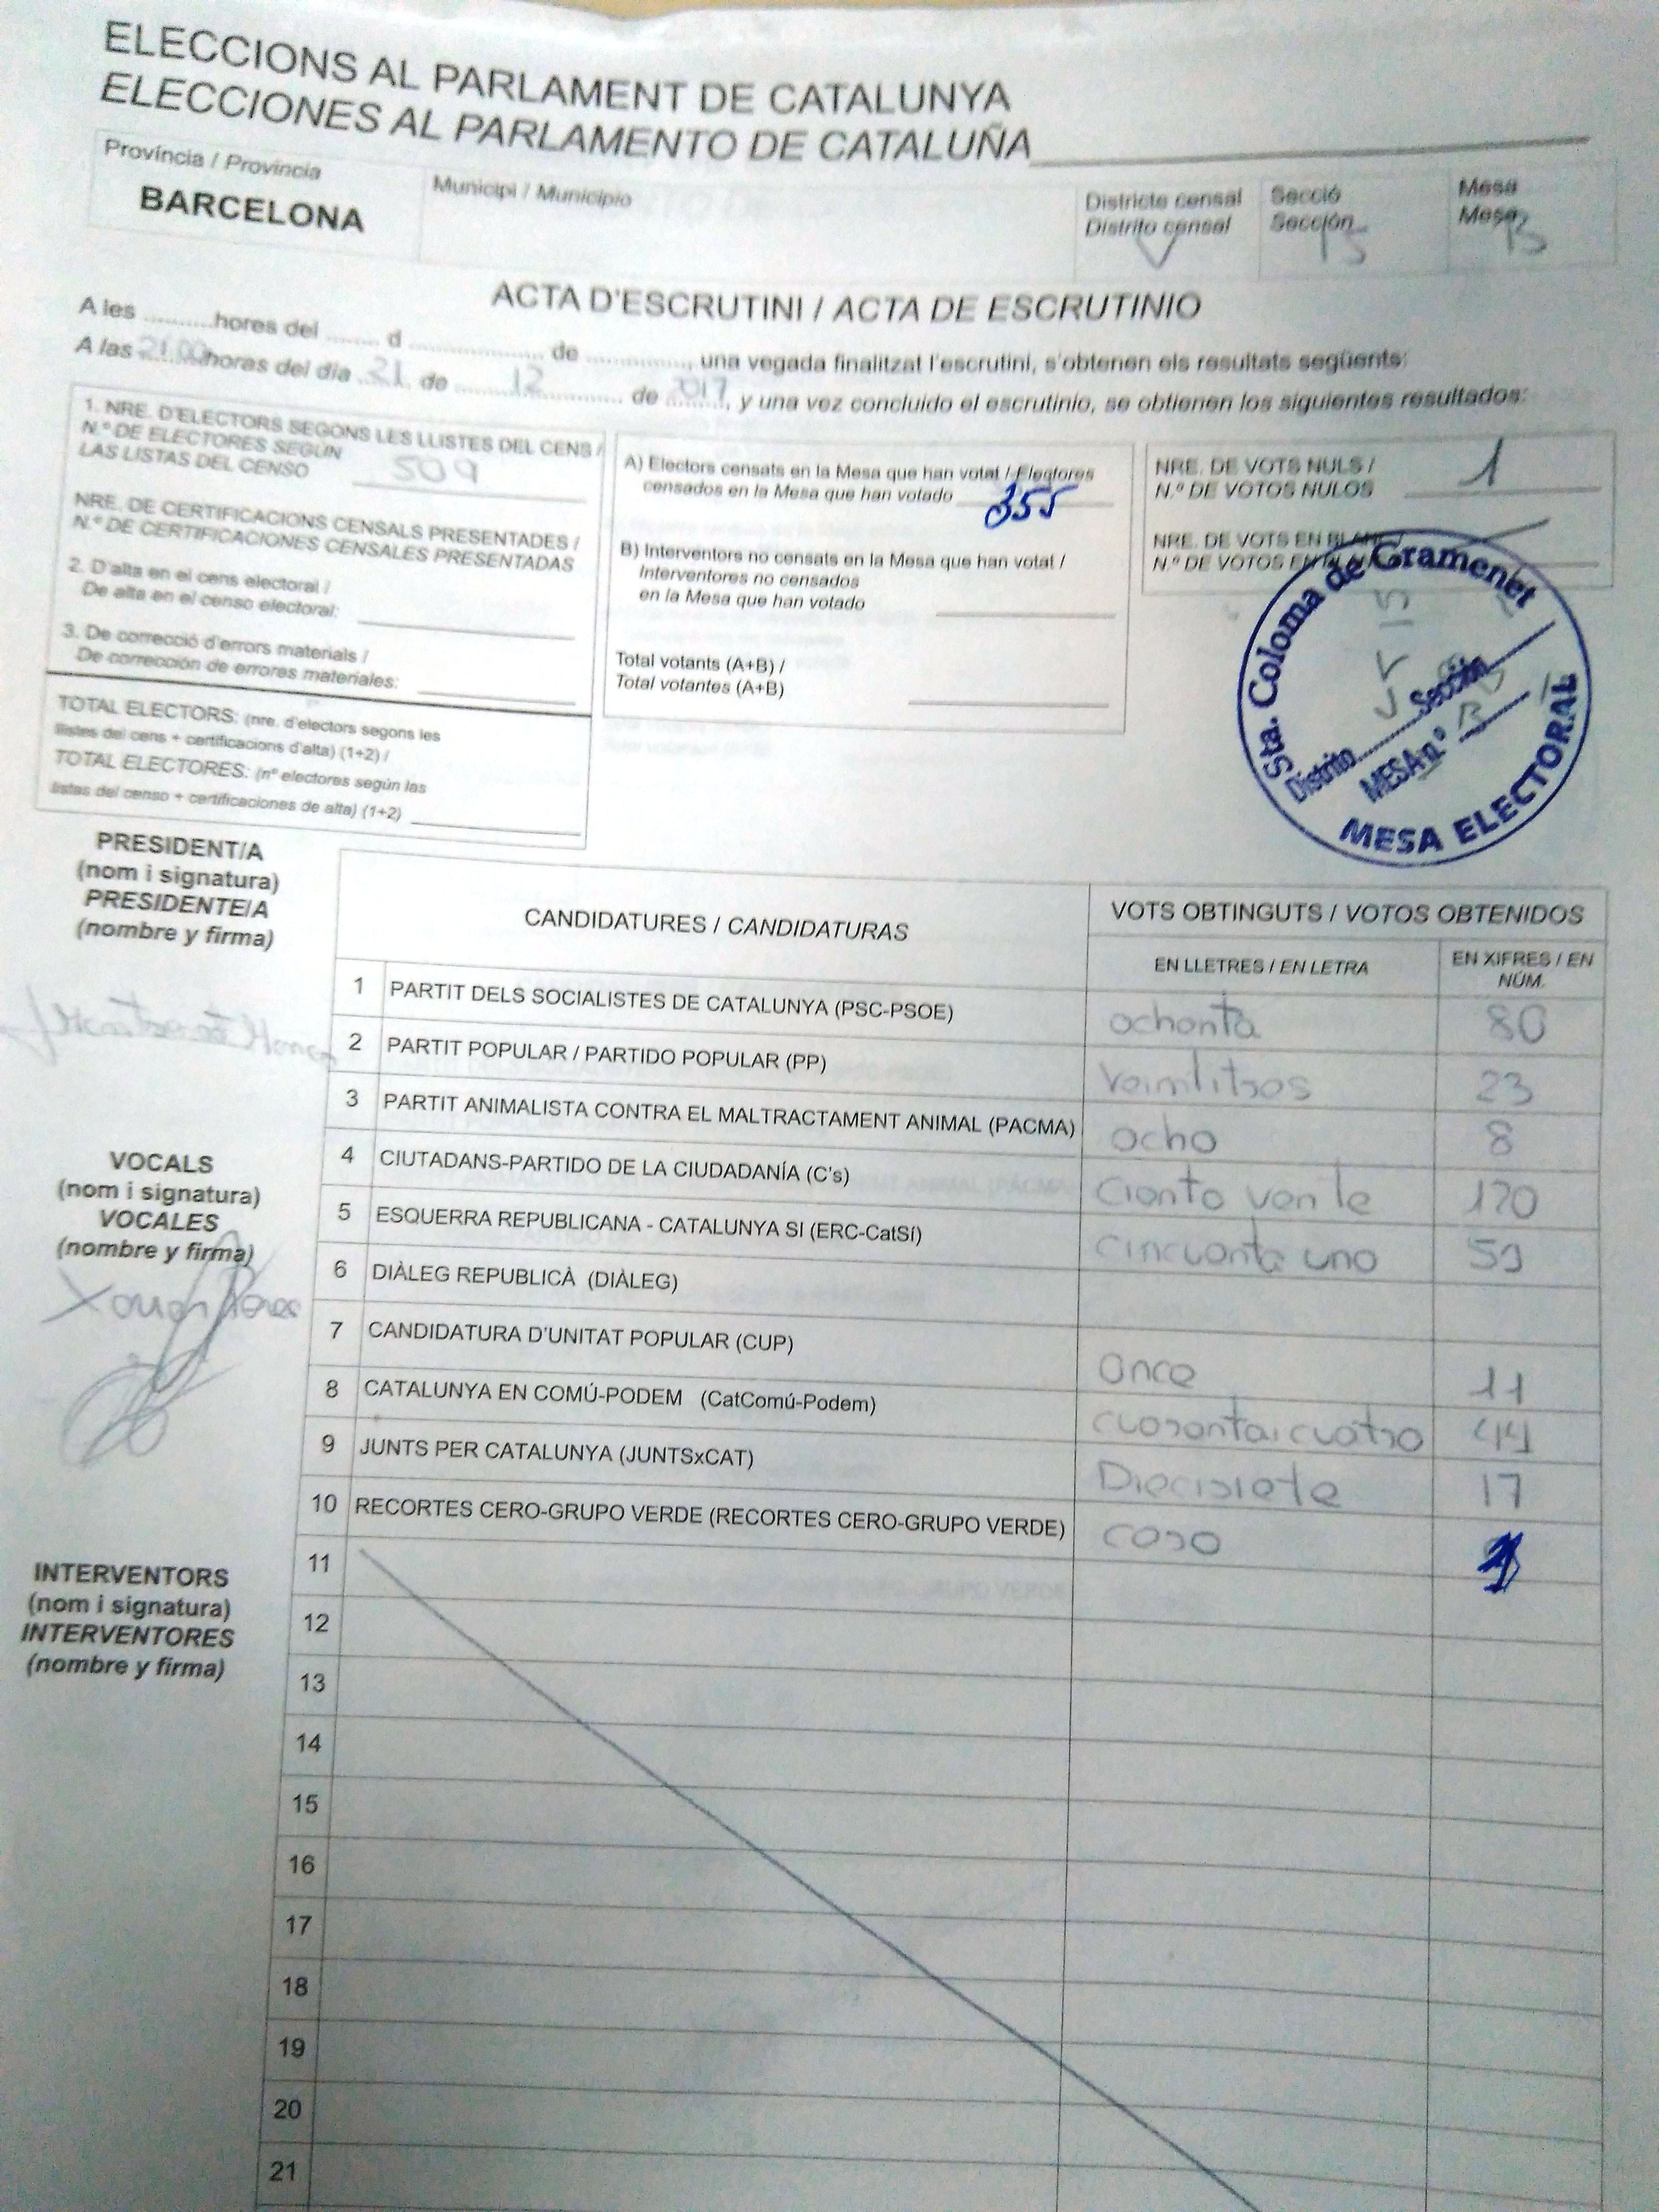 ELECCIONS AL PARLAMENT DE CATALUNYA
ELECCIONES AL PARLAMENTO DE CATALUÑA
Província / Provincia
BARCELONA
Municipi / Municipio
Districte censal
Distrito censal
V
Secció
Sección
15
Mesa
Mesa
B
ACTA D'ESCRUTINI / ACTA DE ESCRUTINIO
A les ..........hores del ........ d .................... de ..............., una vegada finalitzat l'escrutini, s'obtenen els resultats següents:
A las 21,00 horas del día 21 de 12 de 2017, y una vez concluido el escrutinio, se obtienen los siguientes resultados:
1. NRE. D'ELECTORS SEGONS LES LLISTES DEL CENS /
N.º DE ELECTORES SEGÚN
LAS LISTAS DEL CENSO 509
NRE. DE CERTIFICACIONS CENSALS PRESENTADES /
N.º DE CERTIFICACIONES CENSALES PRESENTADAS
2. D'alta en el cens electoral /
De alta en el censo electoral:
3. De correcció d'errors materials /
De corrección de errores materiales:
TOTAL ELECTORS: (nre. d'electors segons les
llistes del cens + certificacions d'alta) (1+2) /
TOTAL ELECTORES: (nº electores según las
listas del censo + certificaciones de alta) (1+2)
A) Electors censats en la Mesa que han votat / Electores
censados en la Mesa que han votado 355
B) Interventors no censats en la Mesa que han votat /
Interventores no censados
en la Mesa que han votado
Total votants (A+B) /
Total votantes (A+B)
NRE. DE VOTS NULS /
N.º DE VOTOS NULOS 1
NRE. DE VOTS EN BLANC /
N.º DE VOTOS EN
Sta. Coloma de Gramenet
Distrito V Sección 15
MESA n.º B
MESA ELECTORAL
PRESIDENT/A
(nom i signatura)
PRESIDENTE/A
(nombre y firma)
VOCALS
(nom i signatura)
VOCALES
(nombre y firma)
INTERVENTORS
(nom i signatura)
INTERVENTORES
(nombre y firma)
CANDIDATURES / CANDIDATURAS
VOTS OBTINGUTS / VOTOS OBTENIDOS
EN LLETRES / EN LETRA
EN XIFRES / EN NÚM.
1 PARTIT DELS SOCIALISTES DE CATALUNYA (PSC-PSOE) ochenta 80
2 PARTIT POPULAR / PARTIDO POPULAR (PP) veintitres 23
3 PARTIT ANIMALISTA CONTRA EL MALTRACTAMENT ANIMAL (PACMA) ocho 8
4 CIUTADANS-PARTIDO DE LA CIUDADANÍA (C's) ciento vente 120
5 ESQUERRA REPUBLICANA - CATALUNYA SI (ERC-CatSí) cincuenta uno 51
6 DIÀLEG REPUBLICÀ (DIÀLEG)
7 CANDIDATURA D'UNITAT POPULAR (CUP) Once 11
8 CATALUNYA EN COMÚ-PODEM (CatComú-Podem) cuarentaicuatro 44
9 JUNTS PER CATALUNYA (JUNTSxCAT) Diecisiete 17
10 RECORTES CERO-GRUPO VERDE (RECORTES CERO-GRUPO VERDE) cero
11
12
13
14
15
16
17
18
19
20
21